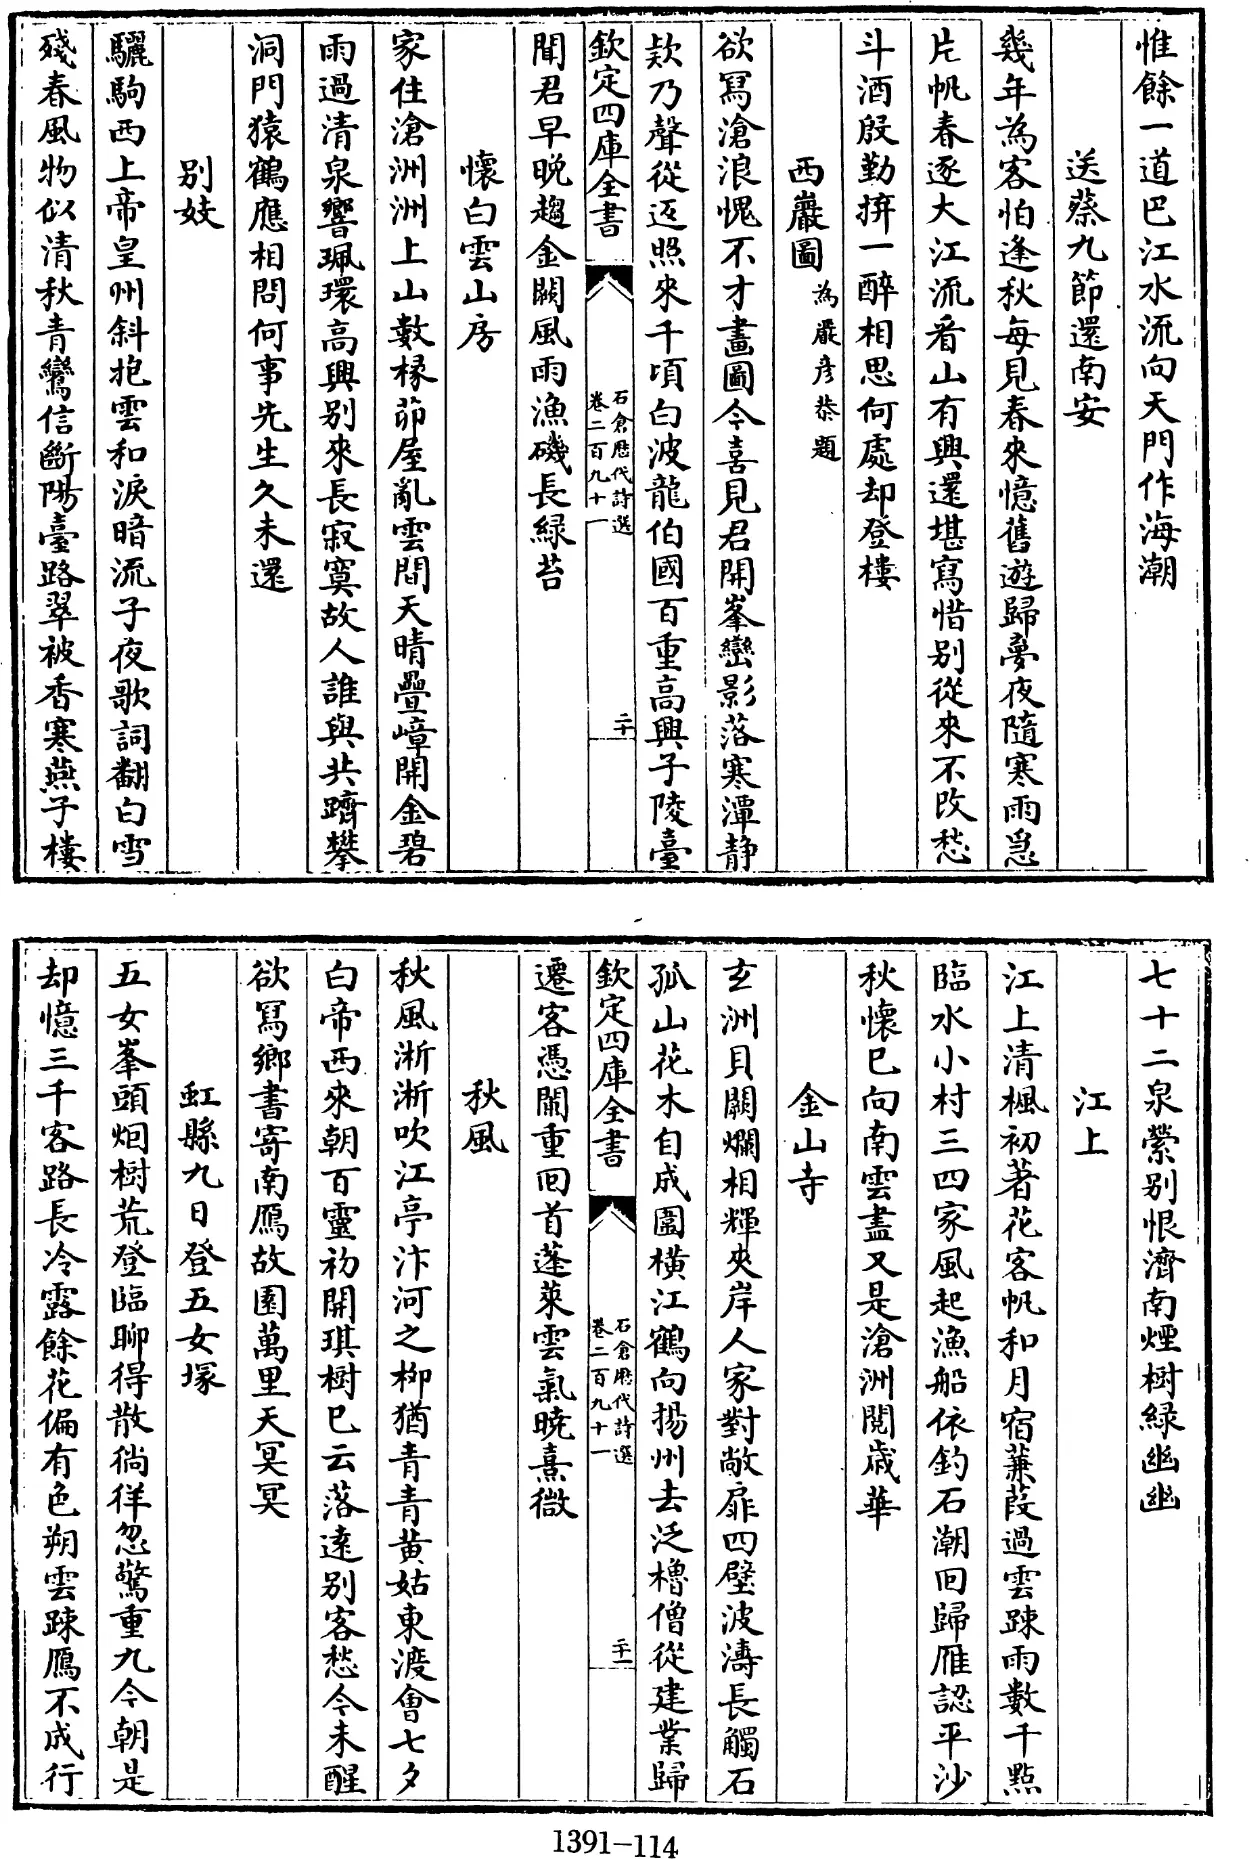 惟餘一道巴江水流向天門作海潮
送蔡九節還南安
幾年為客怕逢秋每見春來憶舊遊歸夢夜隨寒雨急
片帆春逐大江流看山有興還堪寫惜别從來不改愁
斗酒殷勤拚一醉相思何處却登樓
西巖圖為嚴彦恭題
欲冩滄浪愧不才畫圖今喜見君開峯巒影落寒潭静
欵乃聲從返照來千頃白波龍伯國百重高興子陵臺
欽定四庫全書
石倉歴代詩選
卷二百九十一
二十
聞君早晚趨金闕風雨漁磯長緑苔
懷白雲山房
家住滄洲洲上山數椽茆屋亂雲間天晴疊嶂開金碧
雨過清泉響珮環高興别來長寂寞故人誰與共躋攀
洞門猿鶴應相問何事先生久未還
别妓
驪駒西上帝皇州斜抱雲和淚暗流子夜歌詞翻白雪
殘春風物似清秋青鸞信斷陽臺路翠被香寒燕子樓
七十二泉縈别恨濟南煙樹緑幽幽
江上
江上清楓初著花客帆和月宿蒹葭過雲踈雨數千點
臨水小村三四家風起漁船依釣石潮回歸雁認平沙
秋懷已向南雲盡又是滄洲閲歲華
金山寺
玄洲貝闕爛相輝夾岸人家對敞扉四壁波濤長觸石
孤山花木自成圍橫江鶴向揚州去泛櫓僧從建業歸
欽定四庫全書
石倉歴代詩選
卷二百九十一
二十一
遷客憑闌重回首蓬萊雲氣曉熹微
秋風
秋風淅淅吹江亭汴河之柳猶青青黄姑東渡會七夕
白帝西來朝百靈初開琪樹已云落逺别客愁今未醒
欲冩鄉書寄南鴈故園萬里天冥冥
虹縣九日登五女塚
五女峯頭烟樹荒登臨聊得散徜徉忽驚重九今朝是
却憶三千客路長冷露餘花偏有色朔雲踈鴈不成行
1391-114